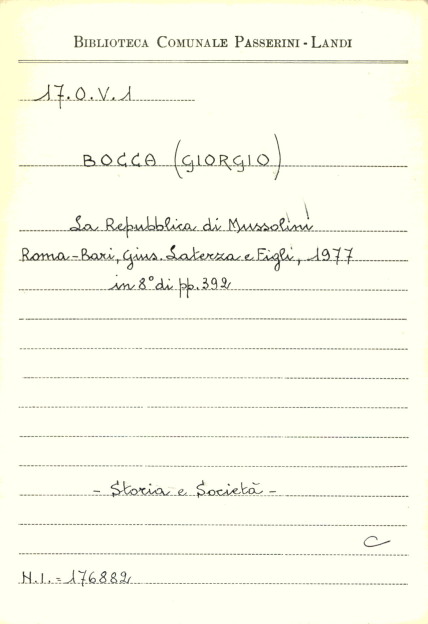 BIBLIOTECA COMUNALE PASSERINI - LANDI
17.O.V.1
BOCCA (GIORGIO)
La Repubblica di Mussolini
Roma-Bari, Gius. Laterza e Figli, 1977
in 8° di pp. 392
- Storia e Società -
C
N.I. = 176882